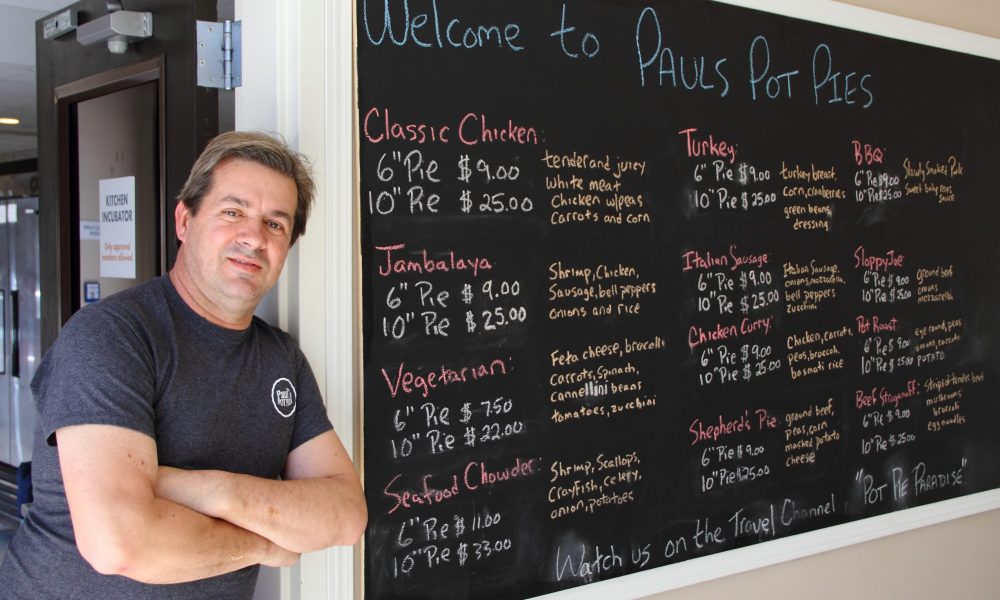 Welcome to PAULS POT PIES
KITCHEN
INCUBATOR
Only approved
members allowed.
Paul's
POT PIES
Classic Chicken:
6" Pie $9.00
10" Pie $25.00
tender and juicy
white meat
Chicken w/peas
Carrots and corn
Jambalaya
6" Pie $9.00
10" Pie $25.00
Shrimp, Chicken,
Sausage, bell peppers
onions and rice
Vegetarian:
6" Pie $7.50
10" Pie $22.00
Feta cheese, broccoli
Carrots, Spinach,
cannellini beans
tomatoes, zucchini
Seafood Chowder:
6" Pie $11.00
10" Pie $33.00
Shrimp, Scallops,
Crayfish, Celery,
onion, potatoes
Turkey:
6" Pie $9.00
10" Pie $25.00
turkey breast,
Corn, cranberries
green beans,
dressing
Italian Sausage:
6" Pie $9.00
10" Pie $25.00
Italian Sausage,
onions, mozzarella,
bell peppers
zucchini
Chicken Curry:
6" Pie $9.00
10" Pie $25.00
Chicken, carrots,
peas, broccoli,
basmati rice
Shepherd's Pie:
6" Pie $9.00
10" Pie $25.00
ground beef,
peas, corn
mashed potato
cheese
BBQ
6" Pie $9.00
10" Pie $25.00
Slowly Smoked Pork
Sweet baby rays
sauce
Sloppy Joe:
6" Pie $9.00
10" Pie $25.00
ground beef
onions
mozzarella
Pot Roast
6" Pie $9.00
10" Pie $25.00
eye round, peas
onions, carrots
POTATO
Beef Stroganoff:
6" Pie $9.00
10" Pie $25.00
Strips of tender beef
mushrooms
broccoli
egg noodles
Watch us on the Travel Channel, "POT PIE PARADISE"